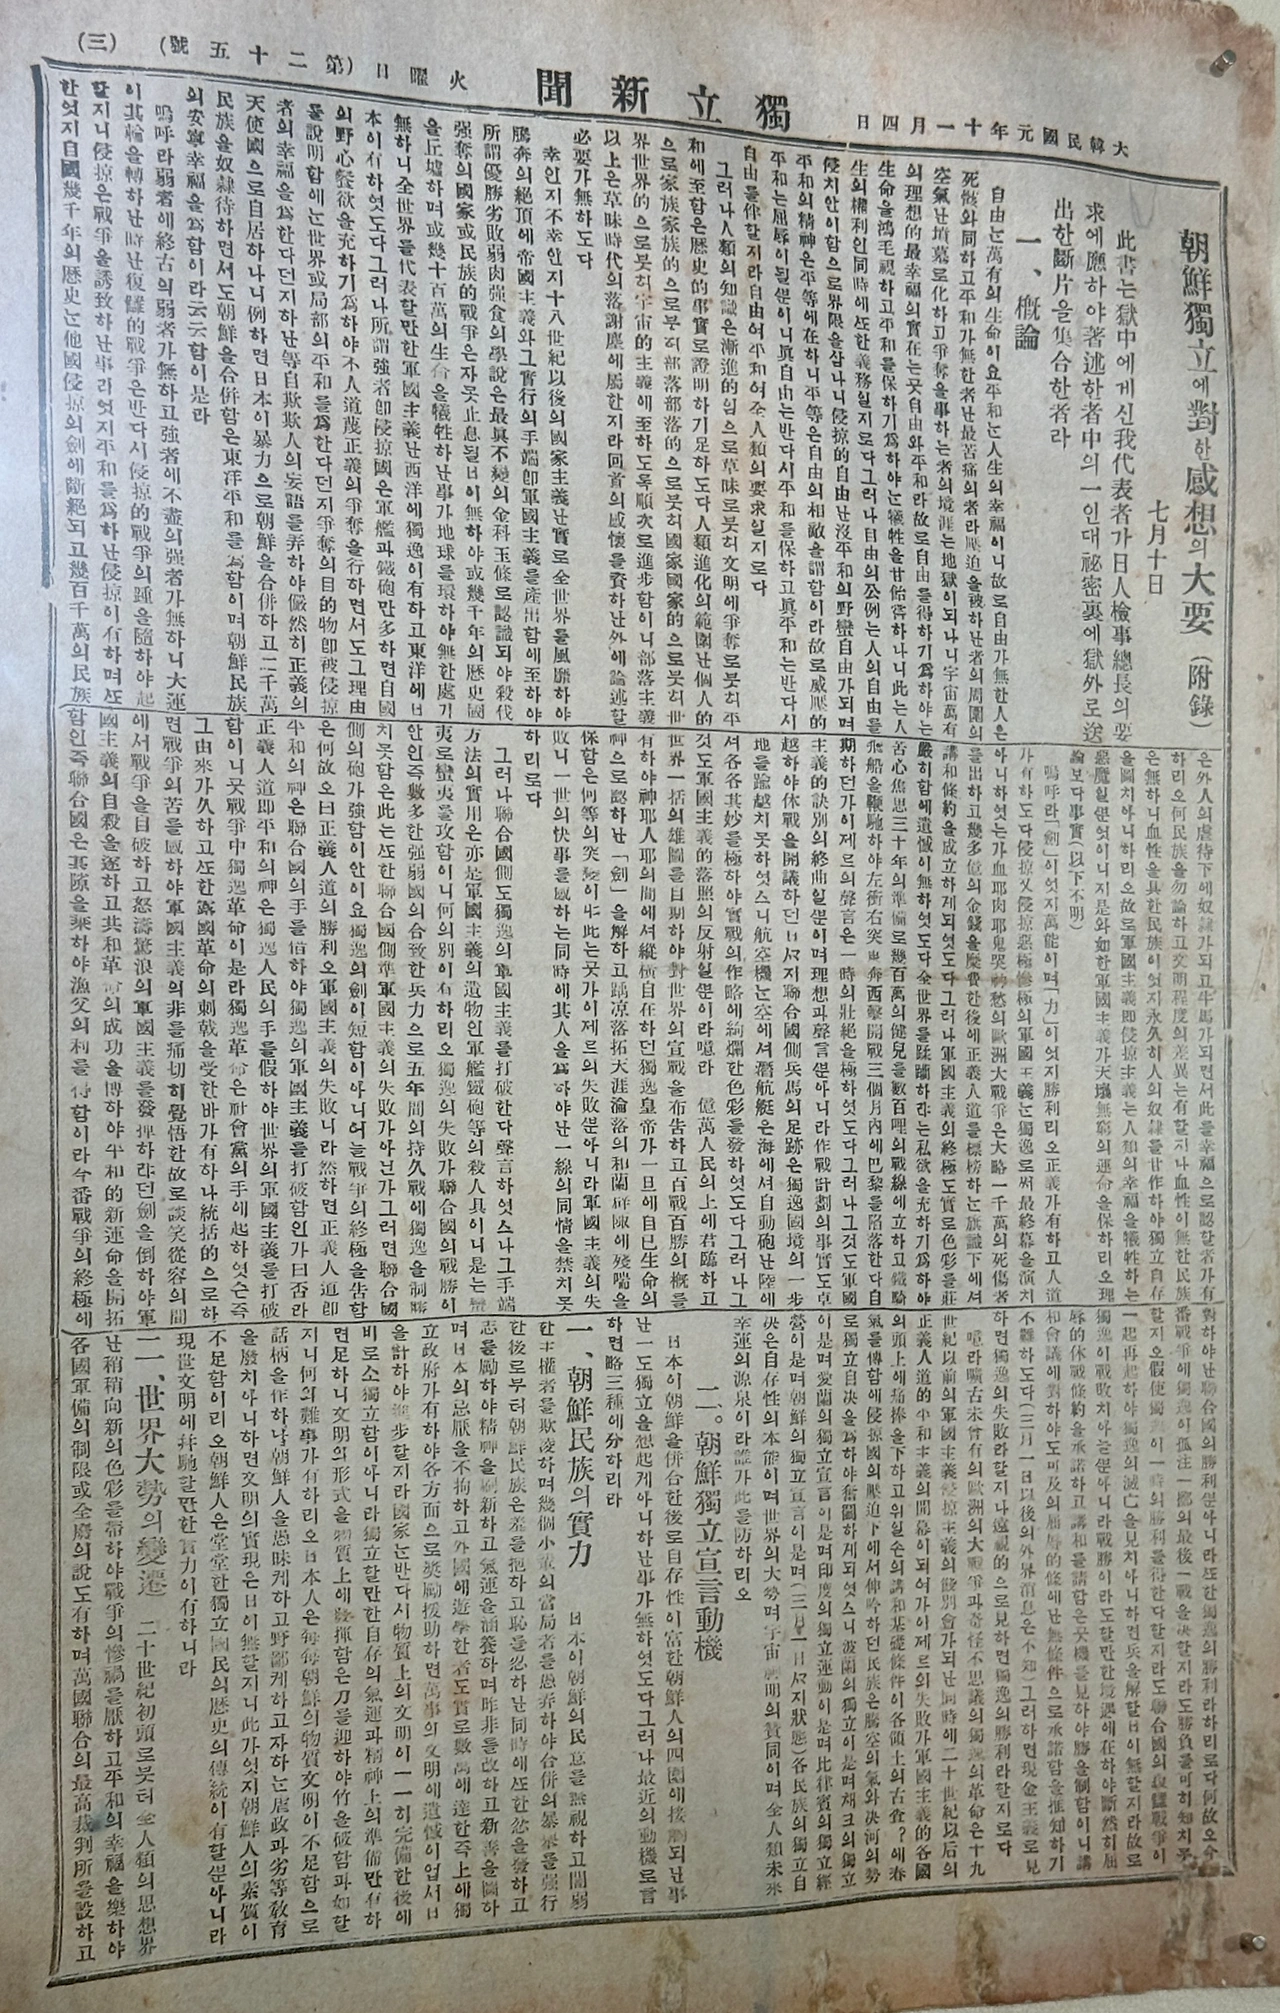 大韓民國元年十一月四日
獨立新聞
火曜日
(第二十五號)
(三)
朝鮮獨立에對한感想의大要 (附錄)
七月十日
此書는獄中에게신我代表者가日人檢事總長의要
求에應하야著述한者中의一인대祕密裏에獄外로送
出한斷片을集合한者라
一、槪論
自由는萬有의生命이요平和는人生의幸福이니故로自由가無한人은
死骸와同하고平和가無한者난最苦痛의者라壓迫을被하난者의周圍의
空氣난墳墓로化하고爭奪을事하는者의境涯는地獄이되나니宇宙萬有
의理想的最幸福의實在는곳自由와平和라故로自由를得하기爲하야는
生命을鴻毛視하고平和를保하기爲하야는犧牲을甘飴嘗하나니此는人
生의權利인同時에또한義務일지로다그러나自由의公例는人의自由를
侵치안이함으로界限을삼나니侵掠的自由난沒平和의野蠻自由가되며
平和의精神은平等에在하니平等은自由의相敵을謂함이라故로威壓的
平和는屈辱이될뿐이니眞自由는반다시平和를保하고眞平和는반다시
自由를伴할지라自由여平和여全人類의要求일지로다
그러나人類의知識은漸進的임으로草昧로붓허文明에爭奪로붓허平
和에至함은歷史的事實로證明하기足하도다人類進化의範圍난個人的
으로家族家族的으로부허部落部落的으로붓허國家國家的으로붓허世
界世界的으로붓허宇宙的主義에至하도록順次로進步함이니部落主義
以上은草昧時代의落謝塵에屬한지라回首의感懷를資하난外에論述할
必要가無하도다
幸인지不幸인지十八世紀以後의國家主義난實로全世界를風靡하야
騰奔의絶頂에帝國主義와그實行의手端卽軍國主義를產出함에至하야
所謂優勝劣敗弱肉强食의學說은最眞不變의金科玉條로認識되야殺伐
强奪의國家或民族的戰爭은자못止息될日이無하야或幾千年의歷史國
을丘墟하며或幾十百萬의生命을犧牲하난事가地球를環하야無한處가
無하니全世界를代表할만한軍國主義난西洋에獨逸이有하고東洋에日
本이有하엿도다그러나所謂强者卽侵掠國은軍艦과鐵砲만多하면自國
의野心壑欲을充하기爲하야不人道蔑正義의爭奪을行하면서도그理由
를說明함에는世界或局部의平和를爲한다던지爭奪의目的物卽被侵掠
者의幸福을爲한다던지하난等自欺欺人의妄語를弄하야儼然히正義의
天使國으로自居하나니例하면日本이暴力으로朝鮮을合倂하고二千萬
民族을奴隸待하면서도朝鮮을合倂함은東洋平和를爲함이며朝鮮民族
의安寧幸福을爲함이라云云함이是라
嗚呼라弱者에終古의弱者가無하고强者에不盡의强者가無하니大運
이其輪을轉하난時난復讐的戰爭은반다시侵掠的戰爭의踵을隨하야起
할지니侵掠은戰爭을誘致하난事라엇지平和를爲하난侵掠이有하며또
한엇지自國幾千年의歷史는他國侵掠의劍에斷絶되고幾百千萬의民族
은外人의虐待下에奴隸가되고牛馬가되면서此를幸福으로認할者가有
하리오何民族을勿論하고文明程度의差異는有할지나血性이無한民族
은無하니血性을具한民族이엇지永久히人의奴隸를甘作하야獨立自存
을圖치아니하리오故로軍國主義卽侵掠主義는人類의幸福을犧牲하는
惡魔일뿐엇이니지是와如한軍國主義가天壤無窮의運命을保하리오理
論보다事實(以下不明)
嗚呼라「劍」이엇지萬能이며「力」이엇지勝利리오正義가有하고人道
가有하도다侵掠又侵掠惡極慘極의軍國主義는獨逸로써最終幕을演치
아니하엿는가血耶肉耶鬼哭神愁의歐洲大戰爭은大略一千萬의死傷者
를出하고幾多億의金錢을糜費한後에正義人道를標榜하는旗識下에셔
講和條約을成立하게되엿도다그러나軍國主義의終極도實로色彩를莊
嚴히함에遺憾이無하엿도다全世界를蹂躪하랴는私欲을充하기爲하야
苦心焦思三十年의準備로幾百萬의健兒를數百哩의戰線에立하고鐵騎
飛船을鞭馳하야左衝右突東奔西擊開戰三個月內에巴黎를陷落한다自
期하던가이제르의聲言은一時의壯絶을極하엿도다그러나그것도軍國
主義的訣別의終曲일뿐이며理想과聲言뿐아니라作戰計劃의事實도卓
越하야休戰을開議하던日까지聯合國側兵馬의足跡은獨逸國境의一步
地를踰越치못하엿스니航空機는空에셔潛航艇은海에셔自動砲난陸에
셔各各其妙를極하야實戰의作略에絢爛한色彩를發하엿도다그러나그
것도軍國主義的落照의反射일뿐이라噫라 億萬人民의上에君臨하고
世界一括의雄圖를自期하야對世界의宣戰을布告하고百戰百勝의槪를
有하야神耶人耶의間에셔縱橫自在하던獨逸皇帝가一旦에自已生命의
神으로認하난「劍」을解하고踽凉落拓天涯淪落의和蘭辟陬에殘喘을
保함은何等의突變이냐此는곳가이제르의失敗뿐아니라軍國主義의失
敗니一世의快事를感하는同時에其人을爲하야난一線의同情을禁치못
하리로다
그러나聯合國側도獨逸의軍國主義를打破한다聲言하엿스나그手端
方法의實用은亦是軍國主義의遺物인軍艦鐵砲等의殺人具이니是는蠻
夷로蠻夷를攻함이니何의別이有하리오獨逸의失敗가聯合國의戰勝이
안인즉數多한强弱國의合致한兵力으로五年間의持久戰에獨逸을制勝
치못함은此는또한聯合國側準軍國主義의失敗가아닌가그러면聯合國
側의砲가强함이안이요獨逸의劍이短함이아니어늘戰爭의終極을告함
은何故오曰正義人道의勝利오軍國主義의失敗니라然하면正義人道卽
平和의神은聯合國의手를借하야獨逸의軍國主義를打破함인가曰否라
正義人道卽平和의神은獨逸人民의手를假하야世界의軍國主義를打破
함이니곳戰爭中獨逸革命이是라獨逸革命은社會黨의手에起하엿슨즉
그由來가久하고또한露國革命의刺戟을受한바가有하나統括的으로하
면戰爭의苦를感하야軍國主義의非를痛切히覺悟한故로談笑從容의間
에서戰爭을自破하고怒濤驚浪의軍國主義를發揮하랴던劍을倒하야軍
國主義의自殺을遂하고共和革命의成功을博하야平和的新運命을開拓
함인즉聯合國은其隙을乘하야漁父의利를得함이라今番戰爭의終極에
對하야난聯合國의勝利뿐아니라또한獨逸의勝利라하리로다何故오今
番戰爭에獨逸이孤注一擲의最後一戰을決할지라도勝負를可히知치못
할지오假使獨逸이一時의勝利를得한다할지라도聯合國의復讐戰爭이
一起再起하야獨逸의滅亡을見치아니하면兵을解할日이無할지라故로
獨逸이戰敗치아늘뿐아니라戰勝이라도할만한境遇에在하야斷然히屈
辱的休戰條約을承諾하고講和를請함은곳機를見하야勝을制함이니講
和會議에對하야도可及的屈辱的條에난無條件으로承諾함을推知하기
不難하도다(三月一日以後의外界消息은不知)그러하면現金主義로見
하면獨逸의失敗라할지나遠視的으로見하면獨逸의勝利라할지로다
噫라曠古未曾有의歐洲의大戰爭과奇怪不思議의獨逸의革命은十九
世紀以前의軍國主義侵掠主義의餞別會가되난同時에二十世紀以后의
正義人道的平和主義의開幕이되여가이제르의失敗가軍國主義的各國
의頭上에痛棒을下하고위일손의講和基礎條件이各領土의古査?에春
氣를傳함에侵掠國의壓迫下에서伸吟하던民族은騰空의氣와決河의勢
로獨立自决을爲하야奮鬪하게되엿스니波蘭의獨立이是며채크의獨立
이是며愛蘭의獨立宣言이是며印度의獨立運動이是며比律賓의獨立經
營이是며朝鮮의獨立宣言이是며(三月一日까지狀態)各民族의獨立自
决은自存性의本能이며世界의大勢며宇宙神明의贊同이며全人類未來
幸運의源泉이라誰가此를防하리오
二。朝鮮獨立宣言動機
日本이朝鮮을倂合한後로自存性이富한朝鮮人의四圍에接觸되난事
난一도獨立을想起케아니하난事가無하엿도다그러나最近의動機로言
하면略三種에分하리라
一、朝鮮民族의實力 日本이朝鮮의民意를無視하고闇弱
한主權者를欺凌하며幾個小輩의當局者를愚弄하야合倂의暴擧를强行
한後로부터朝鮮民族은羞를抱하고恥를忍하난同時에또한忿을發하고
志를勵하야精神을刷新하고氣運을涵養하며昨非를改하고新善을圖하
며日本의忌厭을不拘하고外國에遊學한者도實로數萬에達한즉上에獨
立政府가有하야各方面으로奬勵援助하면萬事의文明에遺憾이업서日
을計하야進步할지라國家는반다시物質上의文明이一一히完備한後에
비로소獨立함이아니라獨立할만한自存의氣運과精神上의準備만有하
면足하니文明의形式을物質上에發揮함은刀를迎하야竹을破함과如할
지니何의難事가有하리오日本人은每每朝鮮의物質文明이不足함으로
話柄을作하나朝鮮人을愚昧케하고野鄙케하고자하는虐政과劣等敎育
을廢치아니하면文明의實現은日이無할지니此가엇지朝鮮人의素質이
不足함이리오朝鮮人은堂堂한獨立國民의歷史的傳統이有할뿐아니라
現世文明에幷馳할만한實力이有하니라
二、世界大勢의變遷 二十世紀初頭로붓터全人類의思想界
난稍稍向新의色彩를帶하야戰爭의慘禍를厭하고平和의幸福을樂하야
各國軍備의制限或全廢의說도有하며萬國聯合의最高裁判所를設하고